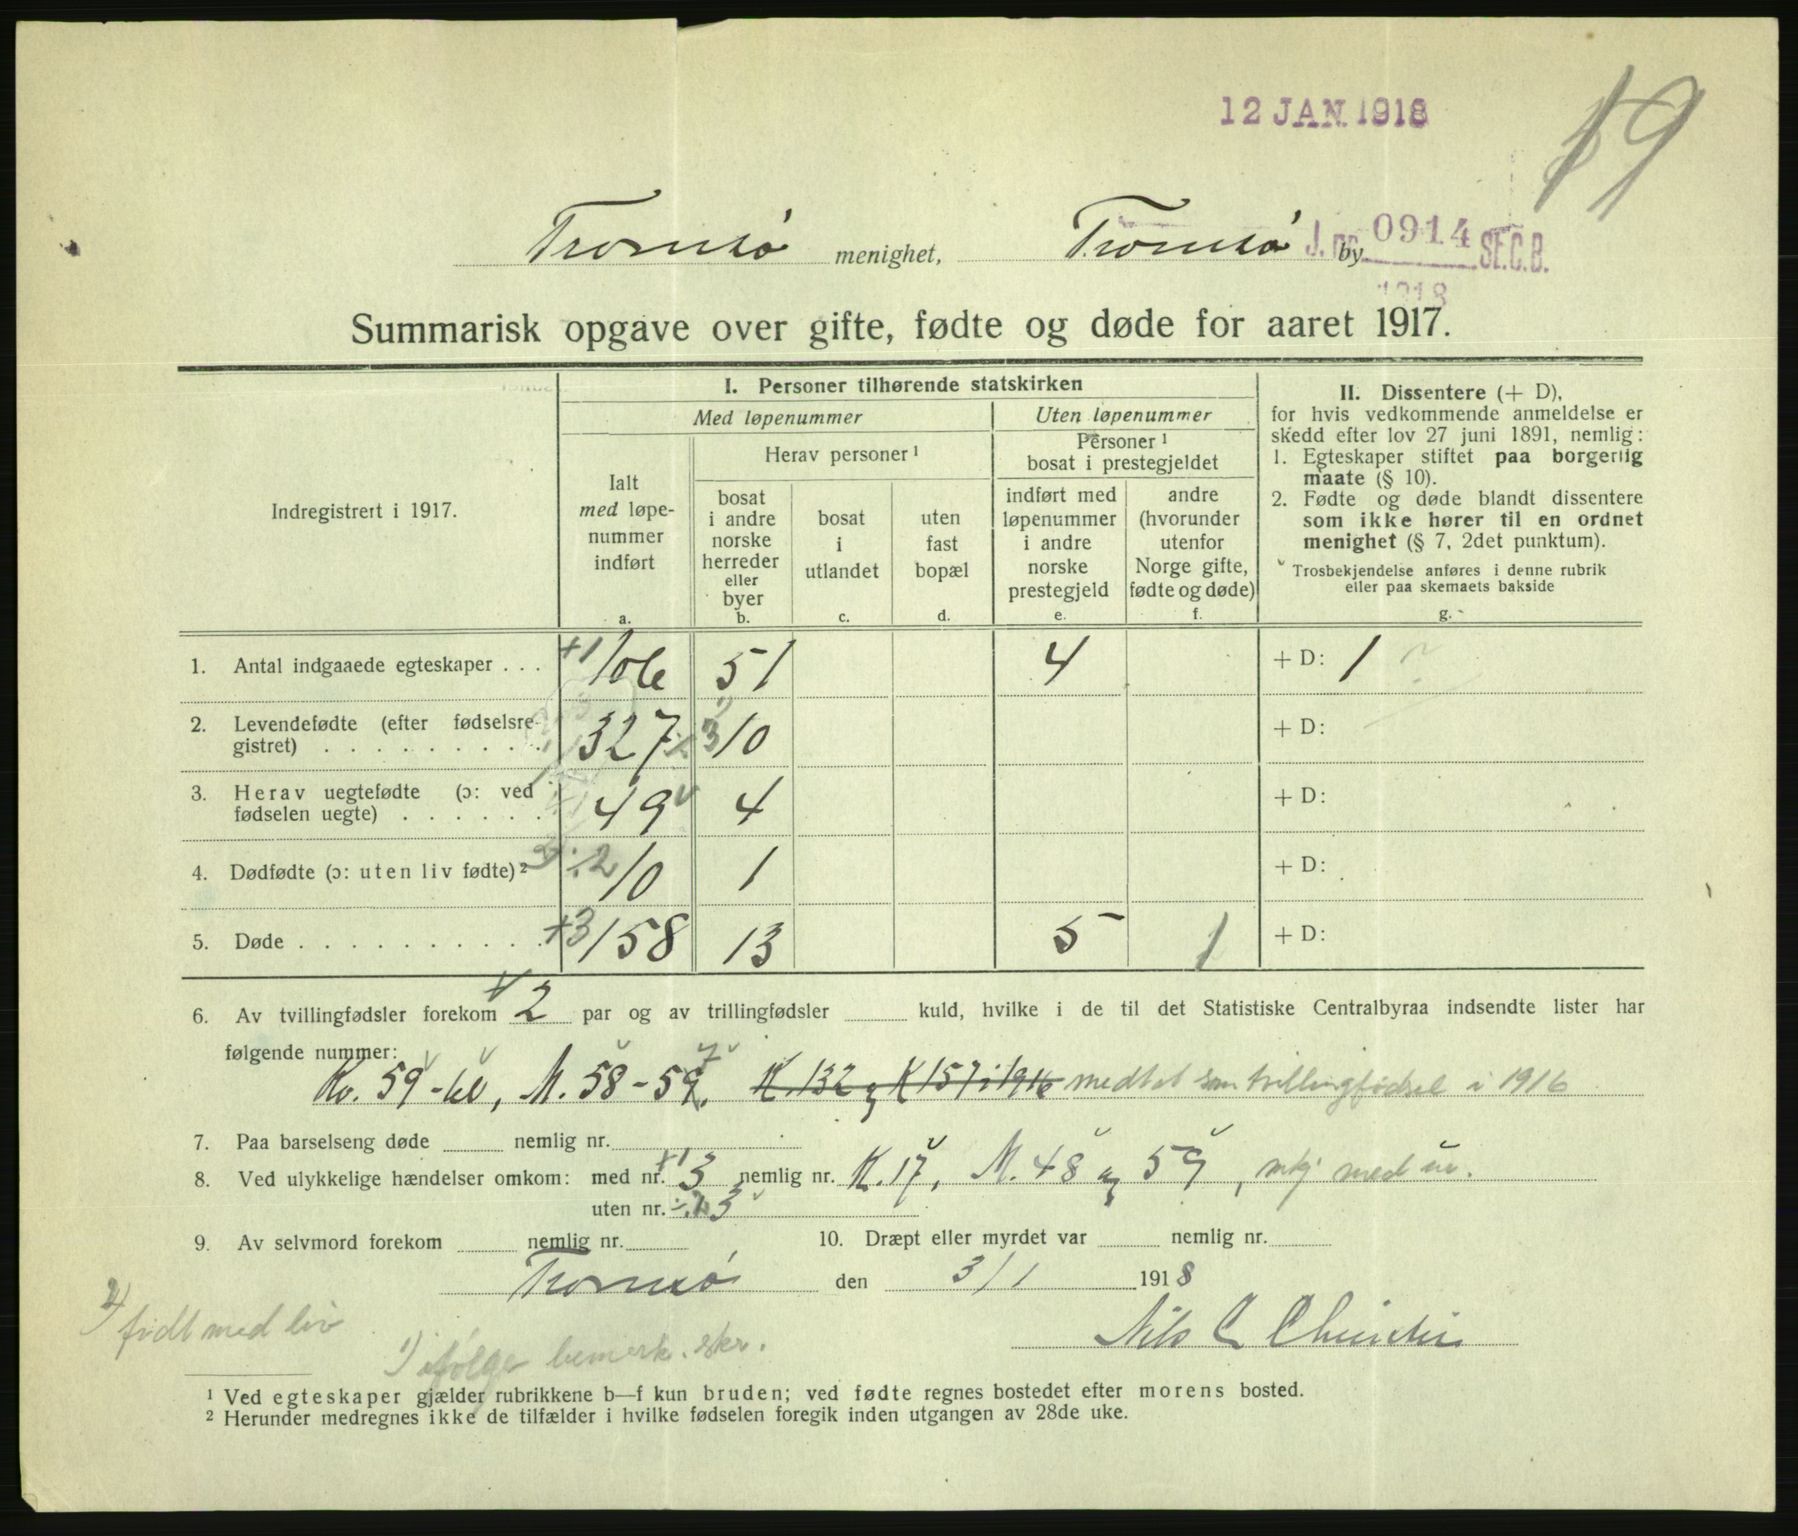 12 JAN. 1918
19
Tromsø menighet, Tromsø by
J. no 0914 ST. C. B.
1918
Summarisk opgave over gifte, fødte og døde for aaret 1917.
Indregistrert i 1917.
I. Personer tilhørende statskirken
Med løpenummer
Uten løpenummer
Ialt
med løpe-
nummer
indført
a.
Herav personer 1
bosat
i andre
norske
herreder
eller
byer
b.
bosat
i
utlandet
c.
uten
fast
bopæl
d.
Personer 1
bosat i prestegjeldet
indført med
løpenummer
i andre
norske
prestegjeld
e.
andre
(hvorunder
utenfor
Norge gifte,
fødte og døde)
f.
II. Dissentere (+ D),
for hvis vedkommende anmeldelse er
skedd efter lov 27 juni 1891, nemlig:
1. Egteskaper stiftet paa borgerlig
maate (§ 10).
2. Fødte og døde blandt dissentere
som ikke hører til en ordnet
menighet (§ 7, 2det punktum).
Trosbekjendelse anføres i denne rubrik
eller paa skemaets bakside
g.
1. Antal indgaaede egteskaper . . . +1 106 51 4 + D: 1 ?
2. Levendefødte (efter fødselsre-
gistret) . . . . . . . . . 327 10 + D:
3. Herav uegtefødte (ɔ: ved
fødselen uegte) . . . . . . 49 4 + D:
4. Dødfødte (ɔ: uten liv fødte) 2 ÷2 10 1 + D:
5. Døde . . . . . . . . . . +3 158 13 5 1 + D:
6. Av tvillingfødsler forekom 2 par og av trillingfødsler kuld, hvilke i de til det Statistiske Centralbyraa indsendte lister har
følgende nummer:
Kv. 59-60, M. 58-59. K. 132 og K 157 i 1916 medtat som tvillingfødsel i 1916
7. Paa barselseng døde nemlig nr.
8. Ved ulykkelige hændelser omkom: med nr. +1 3 nemlig nr. K. 17, M. 48 og 59,
uten nr. 3
9. Av selvmord forekom nemlig nr. 10. Dræpt eller myrdet var nemlig nr.
Tromsø den 3/1 1918
2) født med liv
Nils C Christie
1) ifølge bemerk. skr.
1 Ved egteskaper gjælder rubrikkene b—f kun bruden; ved fødte regnes bostedet efter morens bosted.
2 Herunder medregnes ikke de tilfælder i hvilke fødselen foregik inden utgangen av 28de uke.